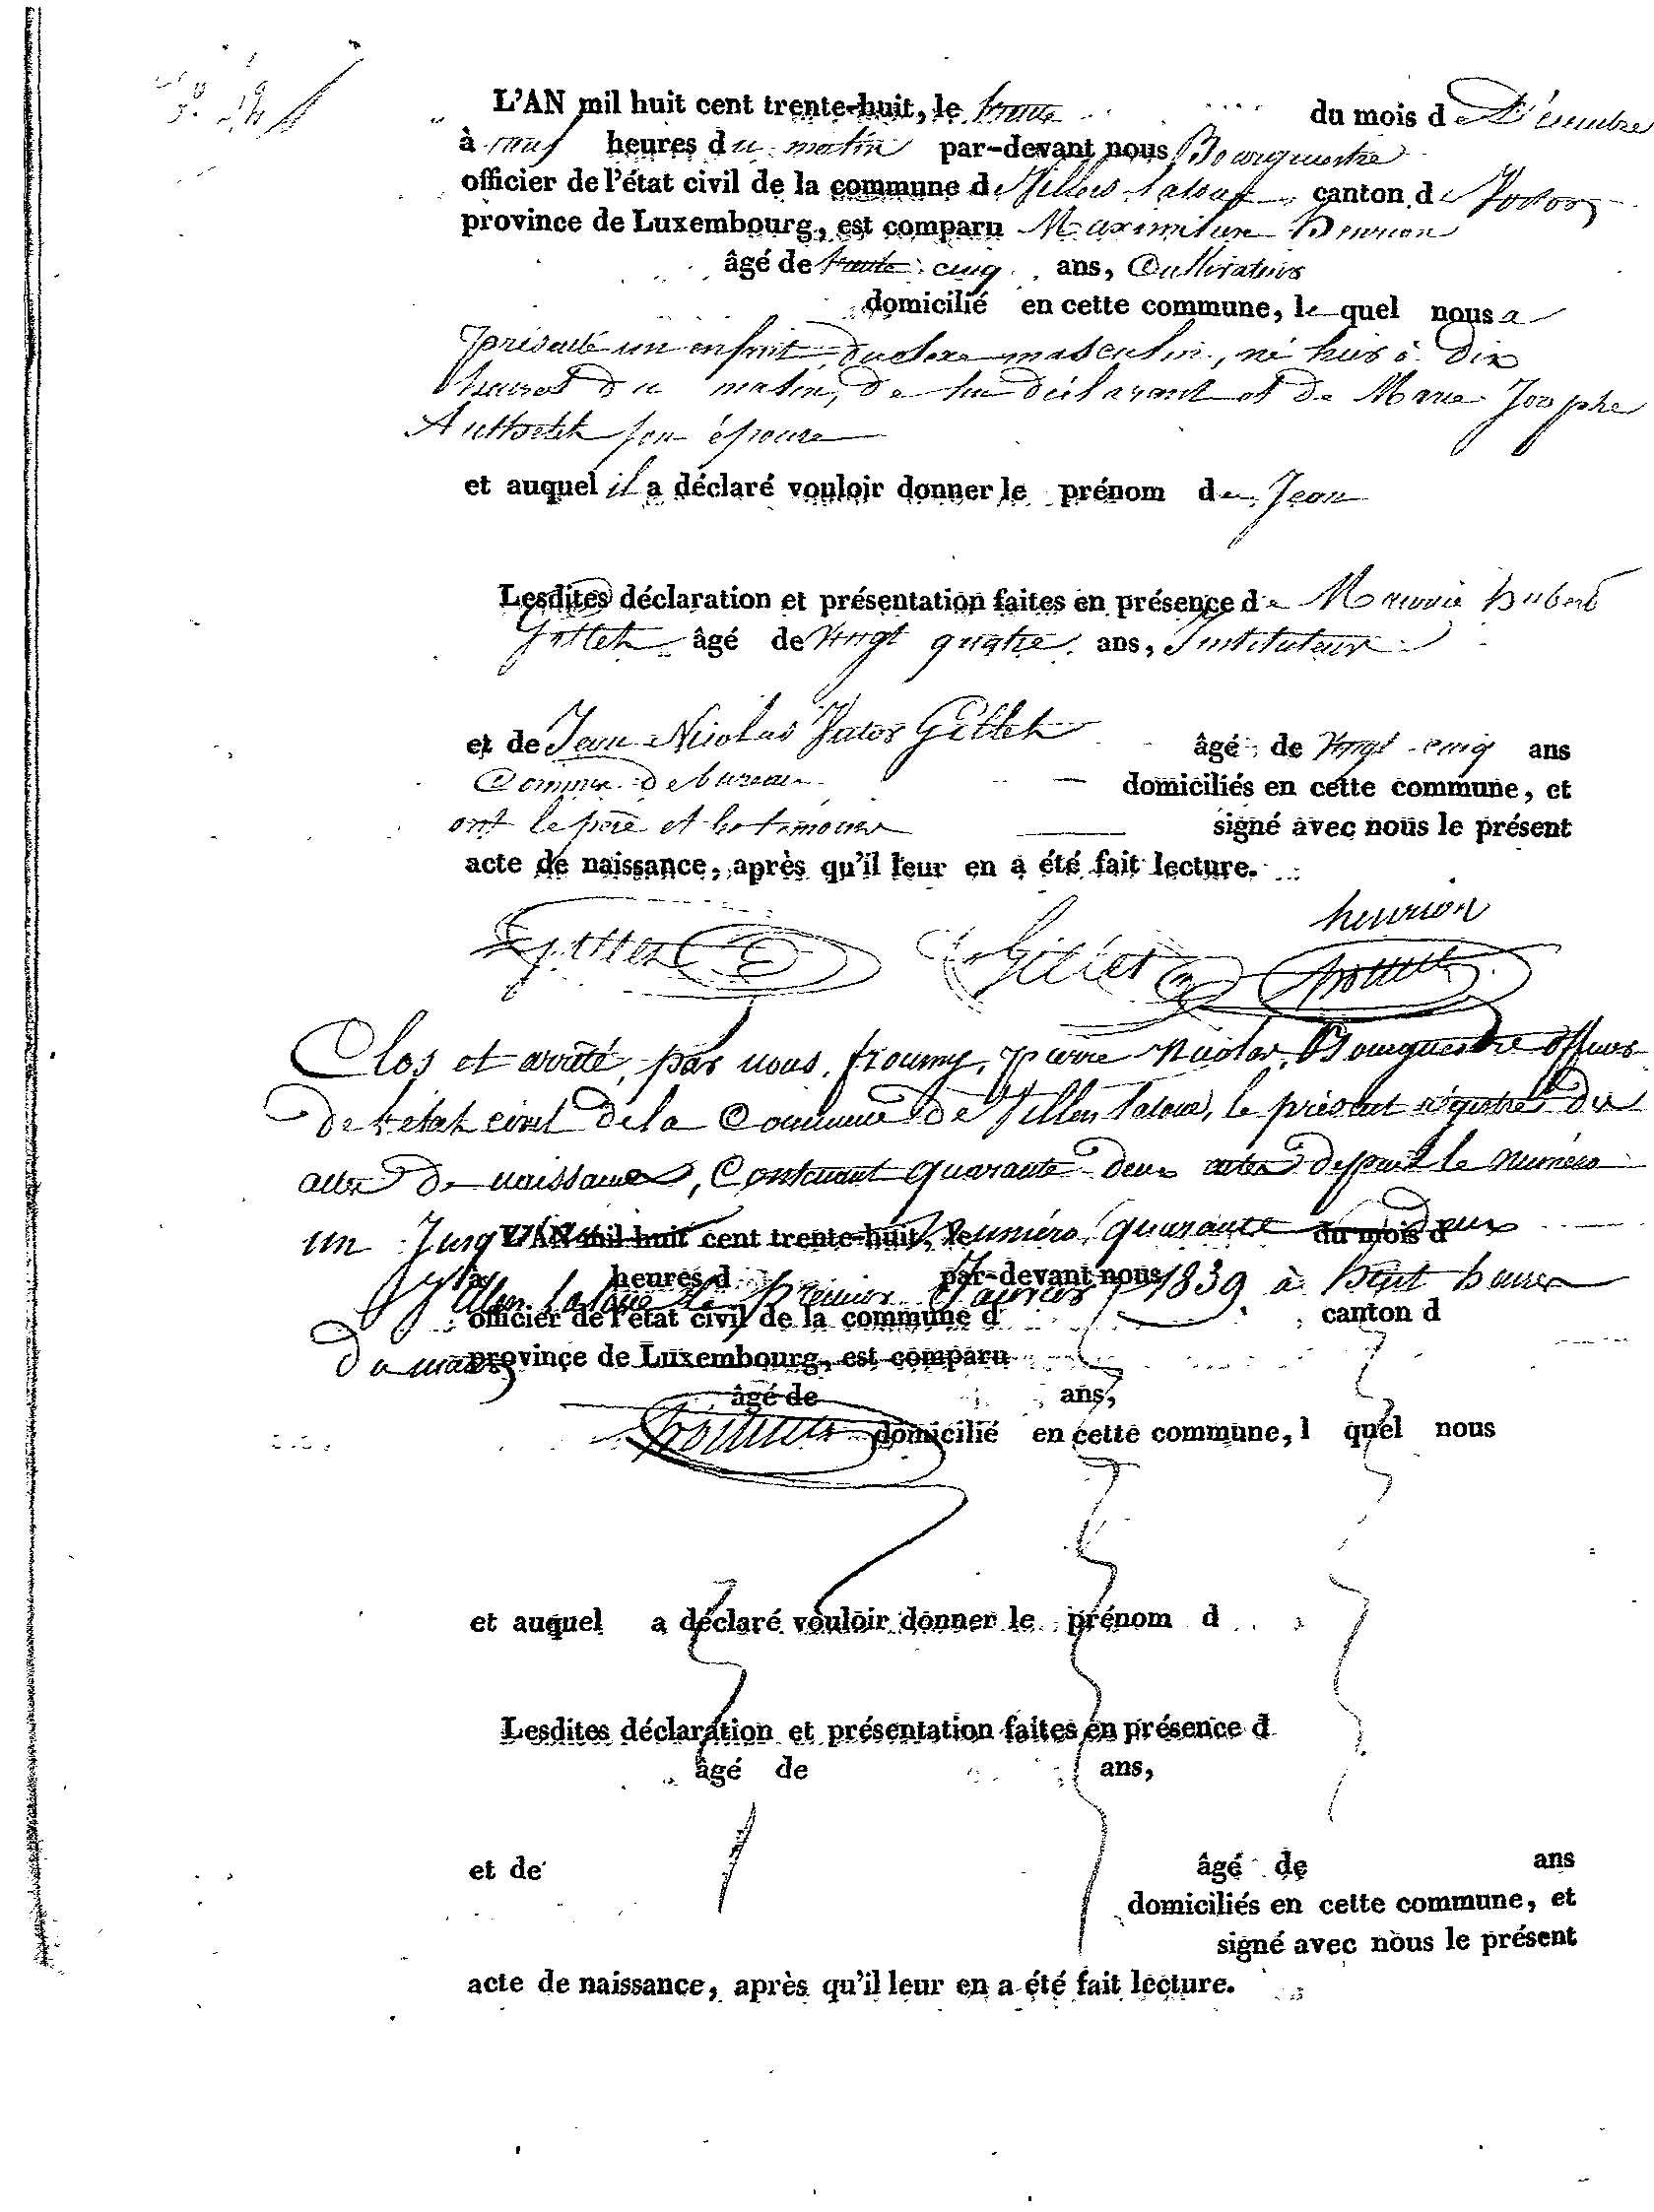 L'AN mil huit cent trente-huit, le trente du mois de Décembre
à neuf heures du matin par-devant nous Bourguestre
officier de l'état civil de la commune de Villers la loue canton de
province de Luxembourg, est comparu Maximilien Henrion
âgé de trente cinq ans, Cultivateur
domicilié en cette commune, lequel nous a
présenté un enfant du sexe masculin, né hier à dix
heures du matin, de lui déclarant et de Marie Josephe
son épouse
et auquel il a déclaré vouloir donner le prénom de Jean
Lesdites déclaration et présentation faites en présence de hubert
âgé de vingt quatre ans, Instituteur
et de Jean Nicolas Gillet âgé de vingt cinq ans
Commis de bureau domiciliés en cette commune, et
ont le père et les témoins signé avec nous le présent
acte de naissance, après qu'il leur en a été fait lecture.
henrion
Gillet
Clos et arrêté, par nous, pierre Nicolas, Bourguestre officier
de l'état civil de la Commune de Villers la loue, le présent régistre des
actes de naissances, Contenant quarante deux actes depuis le numéro
un Jusqu'au numéro quarante deux
L'AN mil huit cent trente-huit, le du mois d
Villers la loue le premier Janvier 1839 à huit heures
à heures d par-devant nous
officier de l'état civil de la commune d canton d
du matin
province de Luxembourg, est comparu
âgé de ans,
domicilié en cette commune, l quel nous
et auquel a déclaré vouloir donner le prénom d
Lesdites déclaration et présentation faites en présence d
âgé de ans,
et de âgé de ans
domiciliés en cette commune, et
signé avec nous le présent
acte de naissance, après qu'il leur en a été fait lecture.